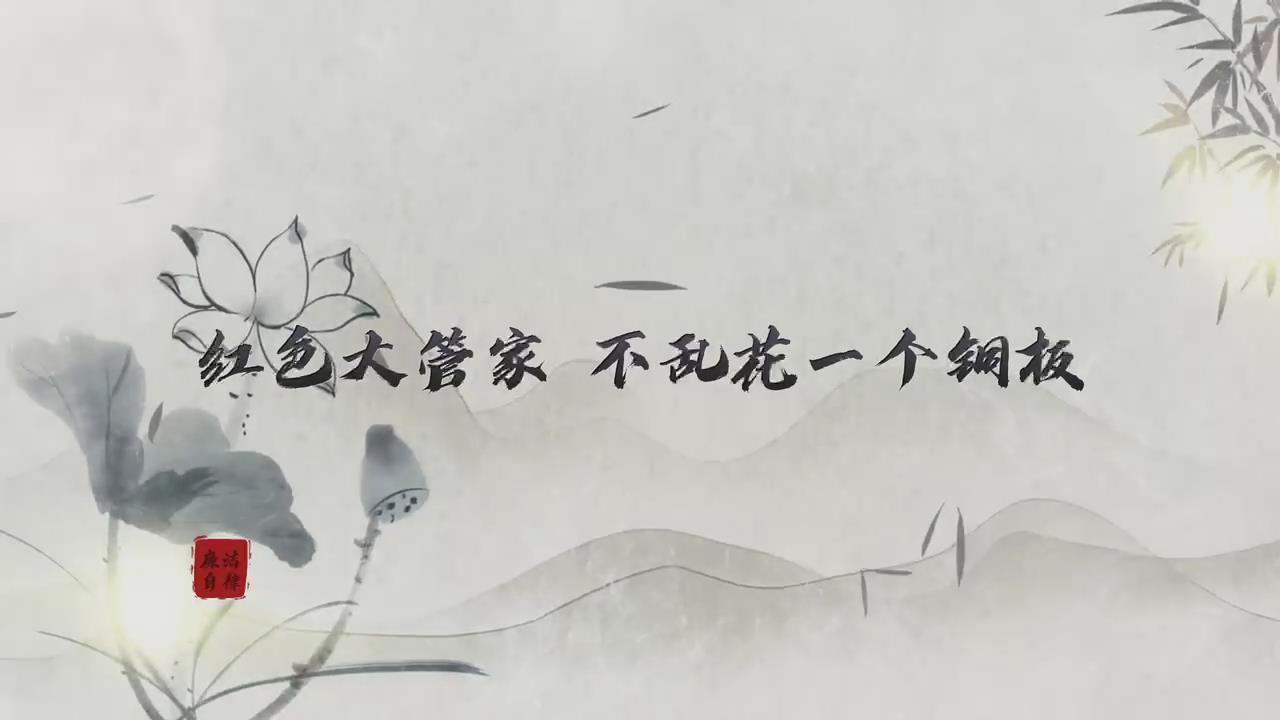 红色大管家 不乱花一个铜板
廉洁
自律